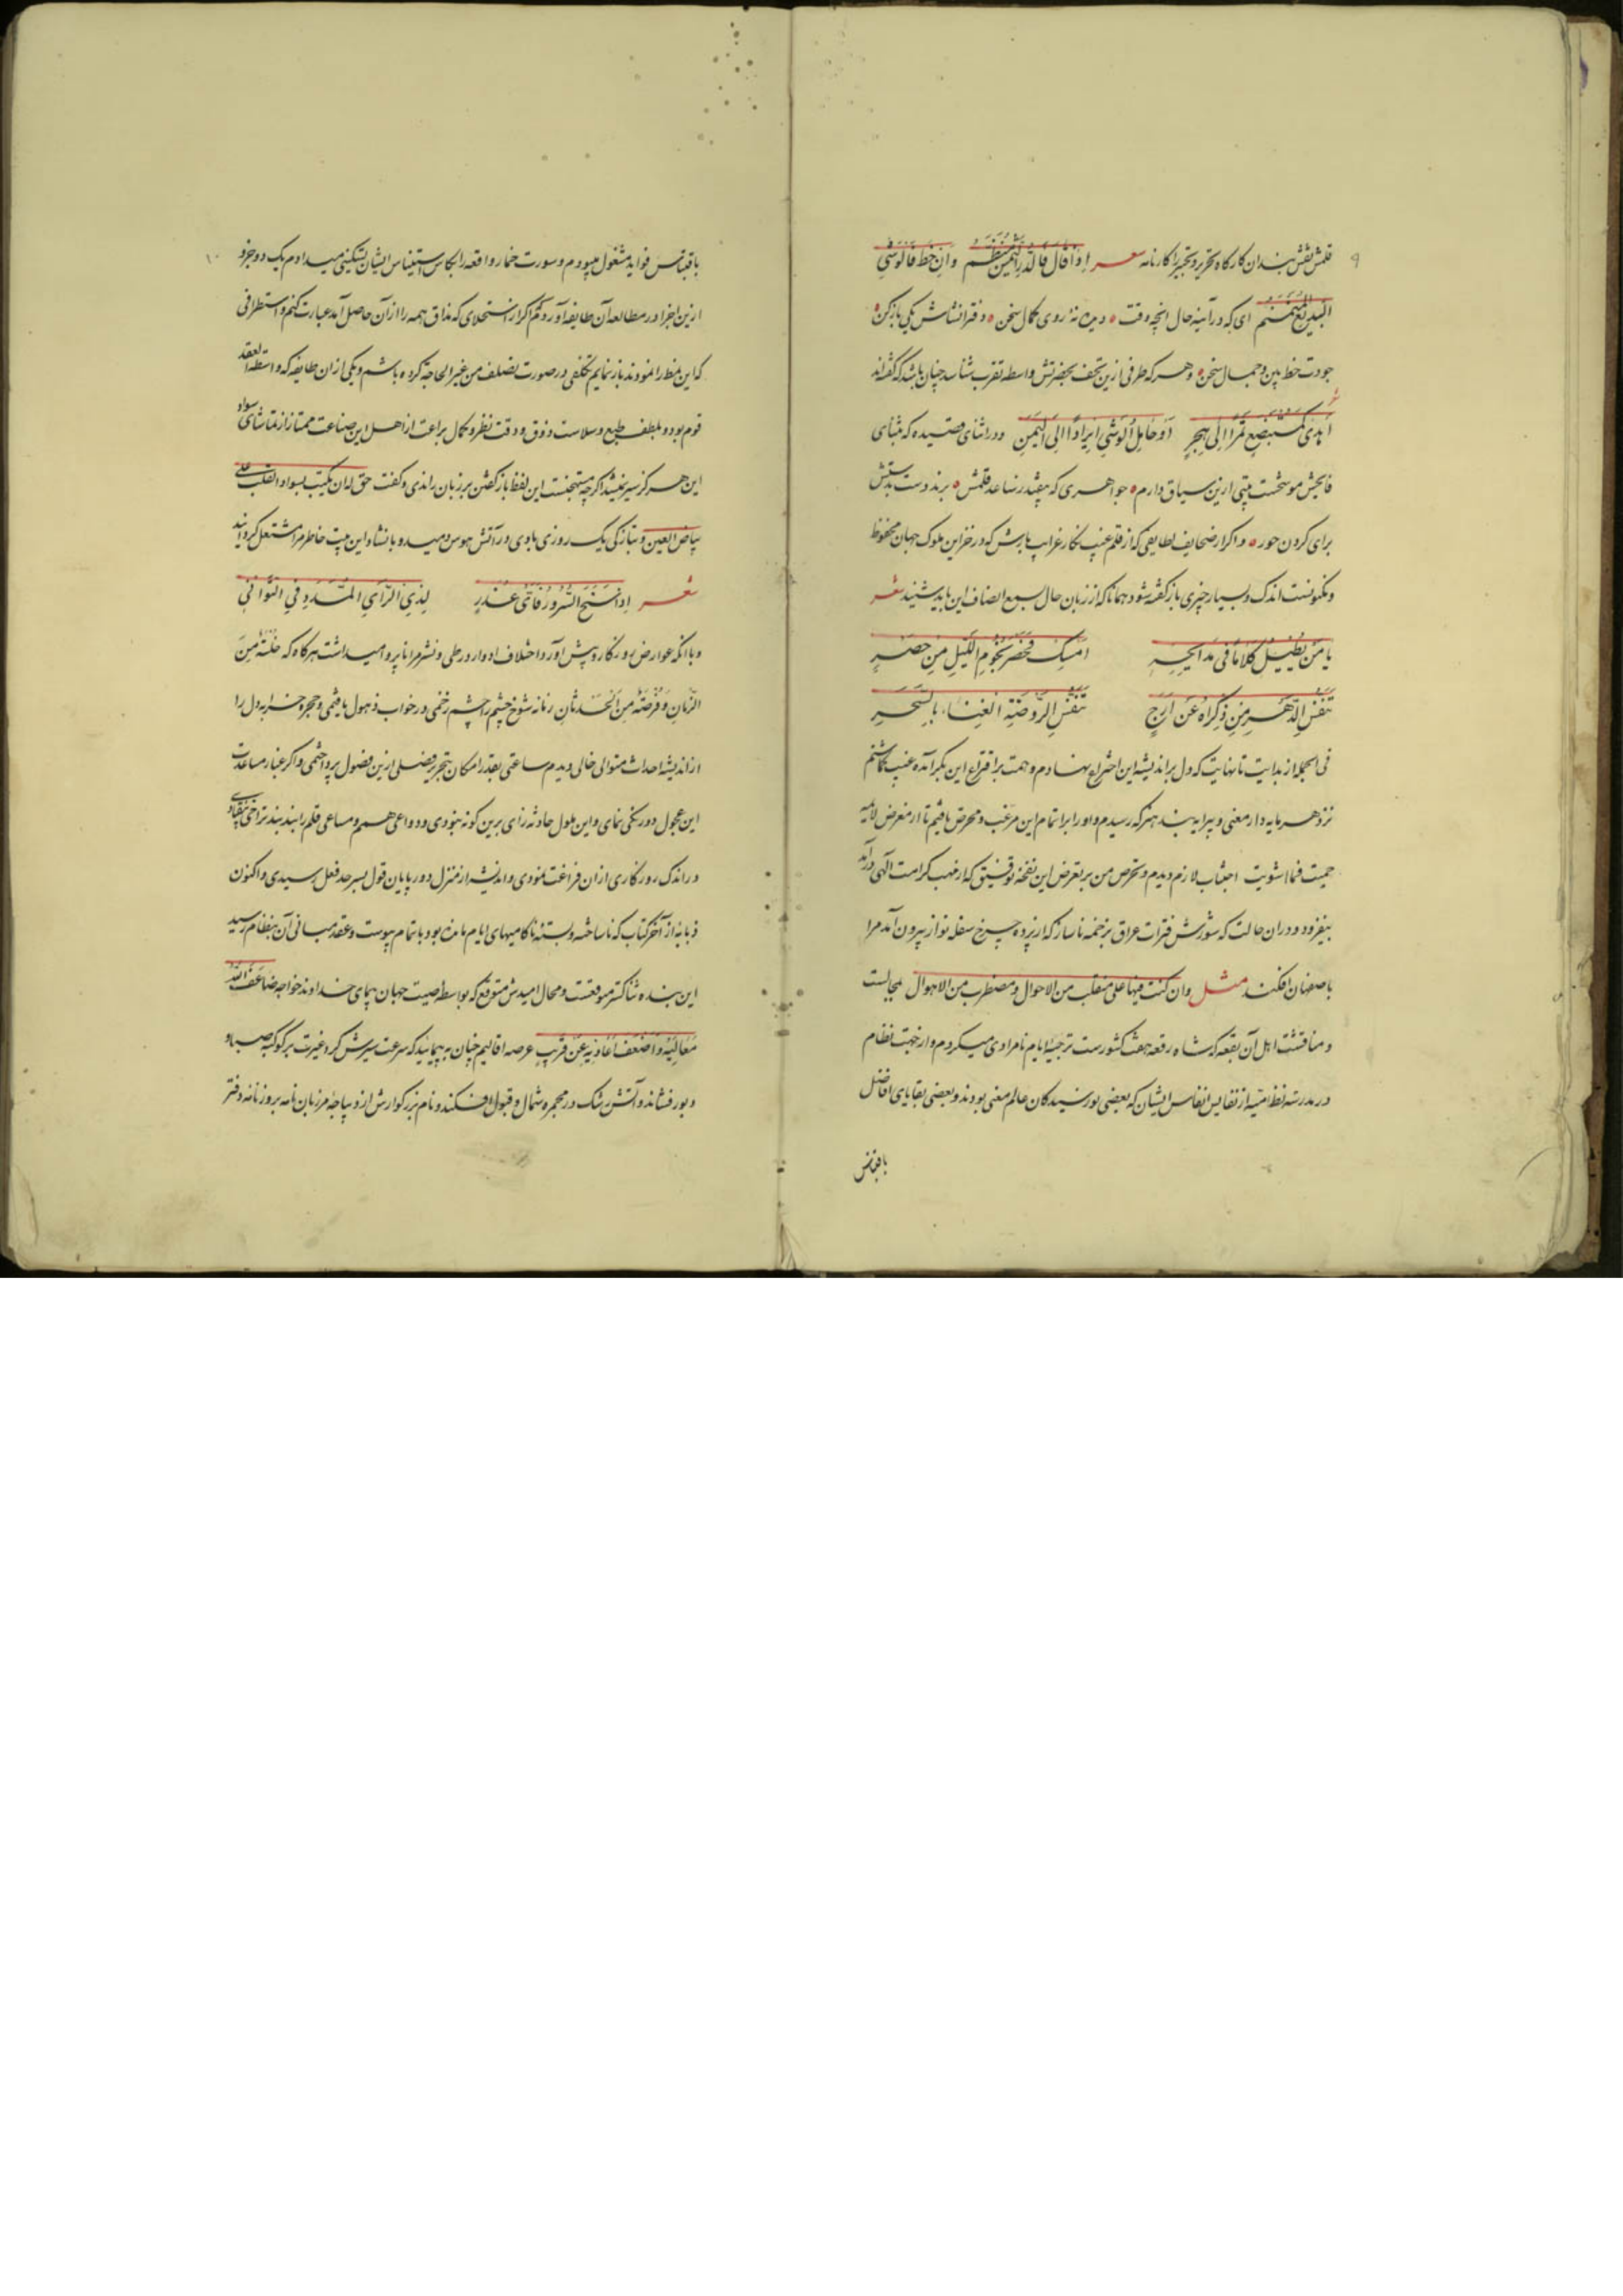 ۹
قلمش نقش بندان کارگاه تحریر و تحبیر را کارنامه شعر إذا قال فالدر الثمین منظم وان خط فالوشی
البدیع منمنم ای که در آینهٔ حال انچه وقت • دیدهٔ روی کمال سخن • دفتر انشاش یکی باز کن •
جودت خط بین و جمال سخن • و هر که طرفی ازین تحف بحضرتش واسطه تقرب شناسد چنان باشد که گفته‌اند
شعر
أهدی کمستبضع تمرا إلی هجر أو حامل الوشی ابرادا إلی الیمن و در اثنای قصیده که مثنای
فاتحش موشحست بیتی ازین سیاق دارم • جواهری که بیفشد ز ساعد قلمش • برند دست بدستش
برای گردن حور • و اگر از صحایف لطایفی که از قلم غیب نگار غرایب بارش که در خزاین ملوک جهان محفوظ
و مکنونست اندک و بسیار چیزی باز گفته شود همانا که از زبان حال بسمع انصاف این باید شنید شعر
یا من یطیل کلاما فی مدایحه امسک فحصر نجوم اللیل من حصر
تنفس الدهر من ذکراه عن ارج تنفس الروضة الغناء بالسحر
فی الجمله از بدایت تا نهایت که دل بر اندیشه این اختراع نهادم و همت بر افتراع این بکر آمده غیب گماشتم
نزد هر مایه دار معنی و پیرایه بند هنر که رسیدم و او را بر اتمام این مرغب و محرض یافتم تا از معرض لائمه
حمیت فما اشویت اجتناب لازم دیدم و تحرص من بر تعرض این نفحه توفیق که از مهب کرامت الهی درآمد
بیفزود و در آن حالت که شورش فترات عراق بزخمه ناساز که از پرده چرخ سفله نواز بیرون آمد مرا
باصفهان افکند مثل وان کنت فیها علی منقلب من الاحوال و مضطرب من الاهوال بمجالست
و منافثت اهل آن بقعه که شاه رقعه هفت کشورست ترجیهٔ ایام نامرادی میکردم و از جهت نظام
در مدرسه نظامیه از نفایس انفاس ایشان که بعضی نورسیدگان عالم معنی بودند و بعضی بقایای افاضل
باقتباس
۱۰
باقتباس فواید مشغول میبودم و سورت خمار واقعه را بکاس استیناس ایشان تسکینی میدادم یک دو جزو
ازین اجزا در مطالعهٔ آن طایفه آوردم اگر از استحلای که مذاق همه را از آن حاصل آمد عبارت کنم و استطرافی
که این نمط را نمودند باز نمایم تکلفی در صورت تصلف من غیر الحاجه کرده باشم و یکی از ان طایفه که واسطه العقد
قوم بود و بلطف طبع و سلاست ذوق و دقت نظر و کمال براعت از اهل این صناعت ممتاز از تماشای سواد
این هرگز سیر نمیشد اگر چه مستهجنست این لفظ باز گفتن بر زبان راندی و گفت حق له ان یکتب بسواد القلب علی
بیاض العین و بتازگی یک روزی بادی در آتش هوس دمید و بانشاد این بیت خاطر مرا مشتعل گردانید
شعر إذا نسخ السرور فأی عذر لذی الرأی المسدد فی التوانی
و با انکه عوارض روزگار در پیش آورد اختلاف ادوار در طی و نشر مرا ناپروا میداشت هرگاه که خلسة من
الزمان وفرصة من الحدثان زمانه شوخ چشم را چشم زخمی در خواب ذهول یافتمی و حجره خرابه دل را
از اندیشه احداث متوالی خالی دیدم ساعتی بقدر امکان بتحریر فصلی ازین فصول پرداختمی و اگر غبار مساعدت
این عجول دو رنگی نمای و این ملول حادثه زای برین گونه نبودی و دواعی همم و مساعی قلم را بند بند تراخی نیفتادی
در اندک روزگاری از ان فراغت نمودی و اندیشه از منزل دور پایان قول بسرحد فعل رسیدی و اکنون
ذنابهٔ از آخر کتاب که ناساخته و بسته ناکامیهای ایام مانده بود باتمام پیوست و عقد مبانی آن بنظام رسید
این بنده شاکتر موقعست و محال امیدش متوقع که بواسطه صیت جهان پیمای خداوند خواجه ضاعف الله
معالیه و اضعف اعادیه عن قریب عرصه اقالیم چنان بپیماید که سرعت سیرش گرد غیرت بر کوکبه صبا و
دبور فشاند و آتش رشک در مجمره شمال و قبول افکند و نام بزرگوارش از دیباجهٔ مرزبان نامه بر روزنامه دفتر